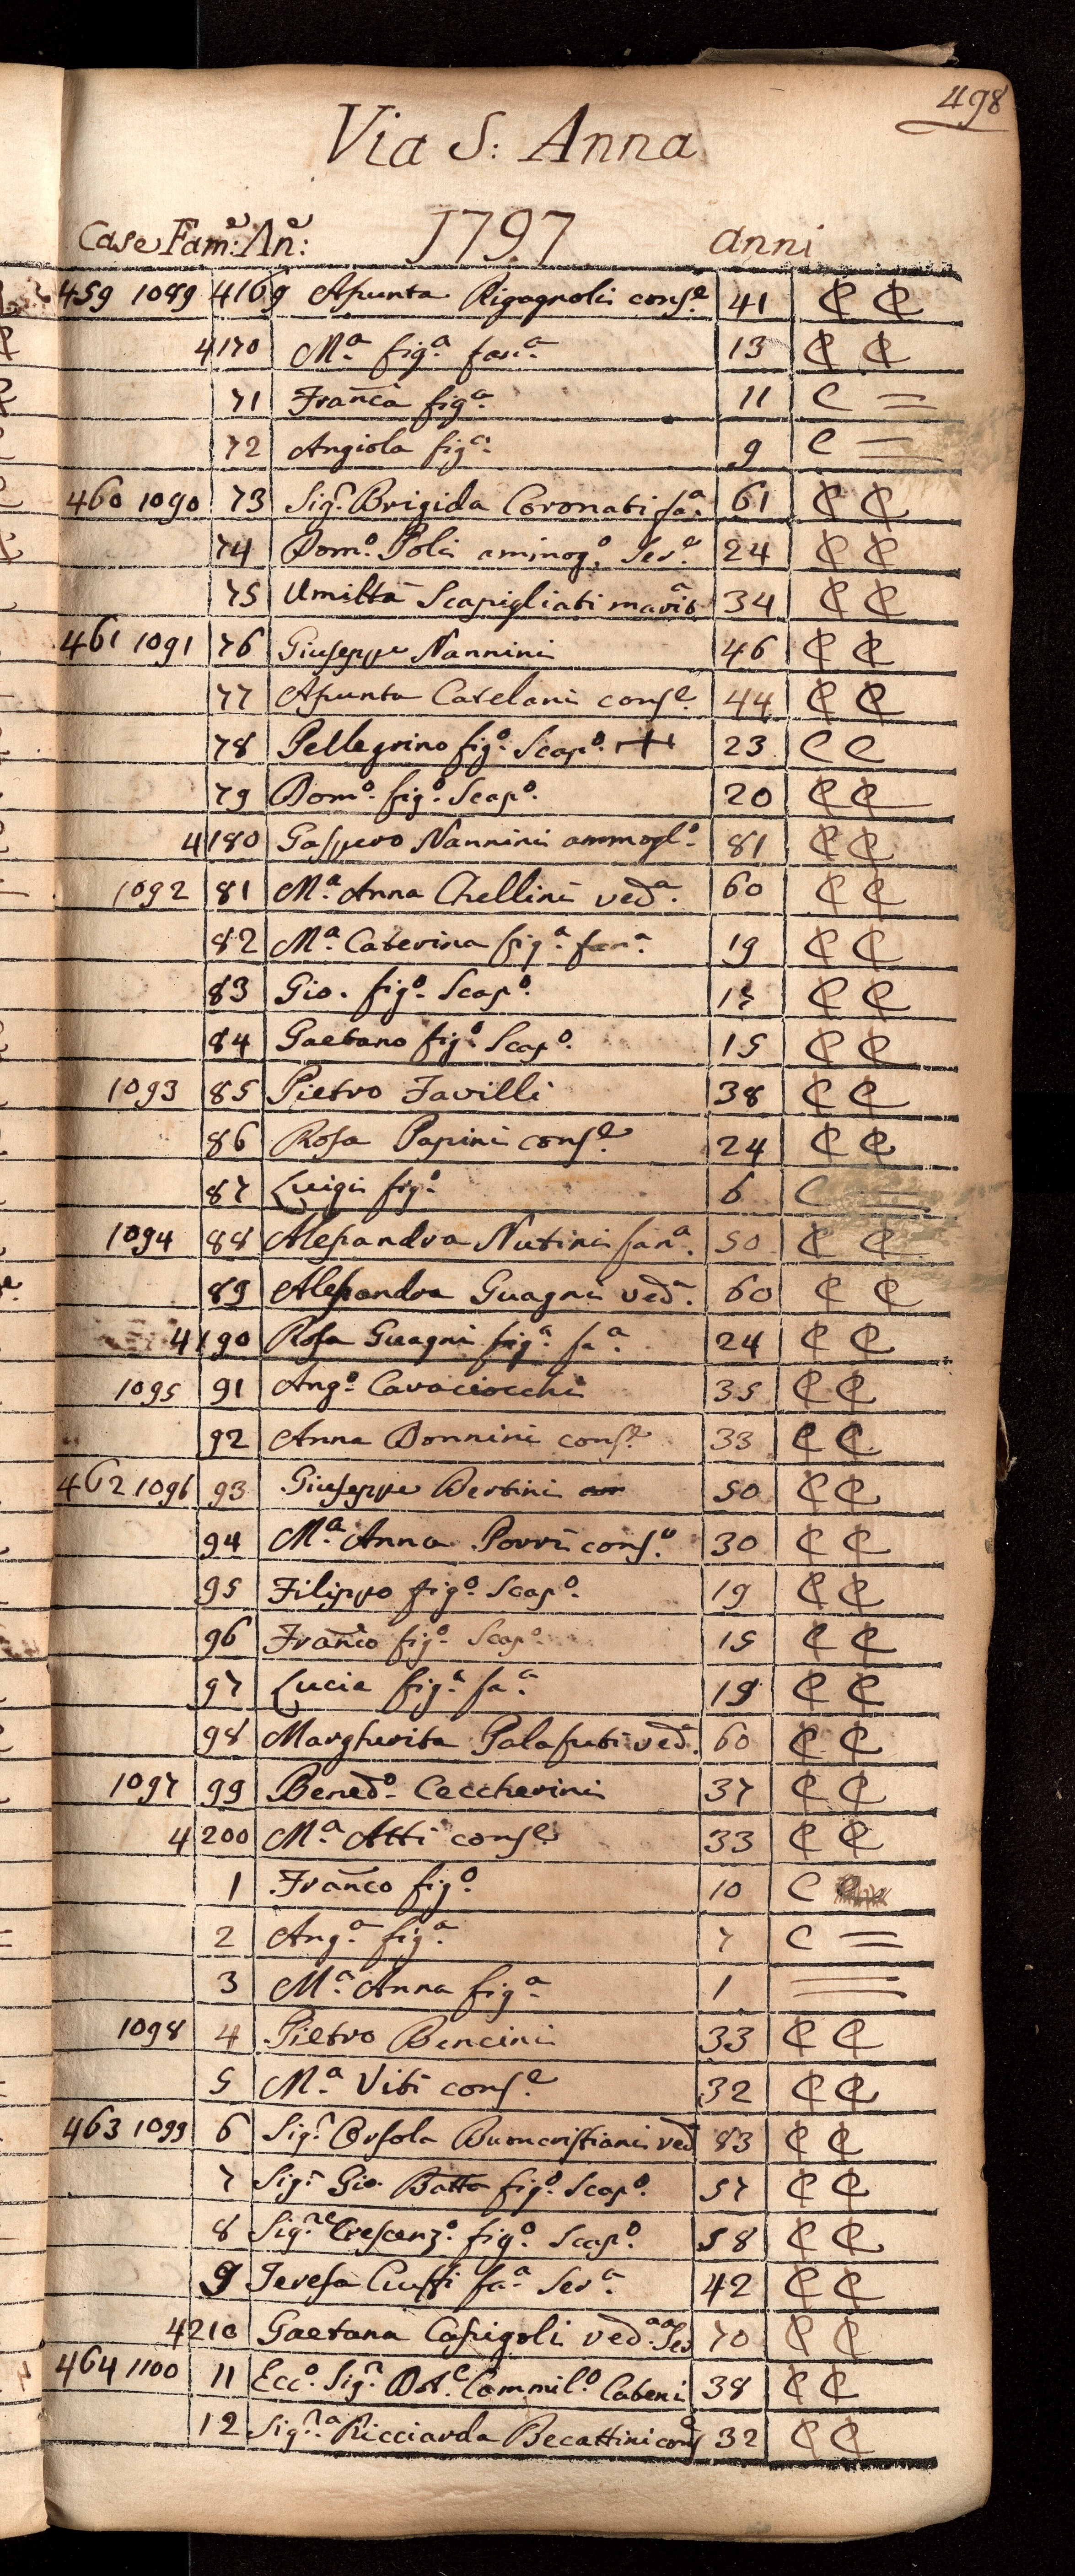 498
Via S: Anna
Case Fam:e An:e 1797 anni
459 1089 4169 Aſsunta Rigagnoli conſe. 41 ₵ ₵
4170 Ma. figa. fana. 13 ₵ ₵
71 Franca figa. 11 C =
72 Angiola figa. 9 C =
460 1090 73 Siga. Brigida Coronati fa.a 61 ₵ ₵
74 Domo. Poli ammogo. Sero. 24 ₵ ₵
75 Umiltà Scapigliati marita 34 ₵ ₵
461 1091 76 Giuseppe Nannini 46 ₵ ₵
77 Aſsunta Catelani conſe. 44 ₵ ₵
78 Pellegrino figo. Scapo. + 23 C C
79 Domo. figo. Scapo. 20 ₵ ₵
4180 Gaſpero Nannini ammoglo. 81 ₵ ₵
1092 81 Ma. Anna Chellini veda. 60 ₵ ₵
82 Ma. Caterina figa. fana. 19 ₵ ₵
83 Gio. figo. Scapo. 17 ₵ ₵
84 Gaetano figo. Scapo. 15 ₵ ₵
1093 85 Pietro Favilli 38 ₵ ₵
86 Roſa Papini conſe. 24 ₵ ₵
87 Luigi figo. 6 C =
1094 88 Aleſsandra Nutini fana. 50 ₵ ₵
89 Aleſsandra Guagni veda. 60 ₵ ₵
4190 Roſa Guagni figa. fa.a 24 ₵ ₵
1095 91 Ango. Cavaciocchi 35 ₵ ₵
92 Anna Bonnini conſe. 33 ₵ ₵
462 1096 93 Giuseppe Bertini 50 ₵ ₵
94 Ma. Anna Porri conſe. 30 ₵ ₵
95 Filippo figo. Scapo. 19 ₵ ₵
96 Franco figo. Scapo. 15 ₵ ₵
97 Lucia figa. fa.a 19 ₵ ₵
98 Margherita Palafuti veda. 60 ₵ ₵
1097 99 Benedo. Ceccherini 37 ₵ ₵
4200 Ma. Atti conſe. 33 ₵ ₵
1 Franco figo. 10 C
2 Anga. figa. 7 C =
3 Ma. Anna figa. 1 =
1098 4 Pietro Bencini 33 ₵ ₵
5 Ma. Viti conſe. 32 ₵ ₵
463 1099 6 Siga. Orſola Buoncriſtiani ved 83 ₵ ₵
7 Sigr. Gio. Batta figo. Scapo. 57 ₵ ₵
8 Sigre. Creſcenzo. figo. Scapo. 58 ₵ ₵
9 Tereſa Ciuffi fa.a Sera. 42 ₵ ₵
4210 Gaetana Capigoli veda. Sea 70 ₵ ₵
464 1100 11 Ecco. Sigr. Dote. Cammilo. Cateni 38 ₵ ₵
12 Sigra. Ricciarda Becattini conſe 32 ₵ ₵